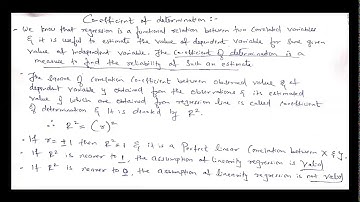 Coefficient of determination :-
- We know that regression is a functional relation between two correlated variables
& it is useful to estimate the value of dependent variable for some given
value of independent variable. The coefficient of determination is a
measure to find the reliability of such an estimate
- The square of correlation coefficient between observed value of
dependent variable y obtained from the observations & its estimated
value ŷ which are obtained from regression line is called coefficient
of determination & it is denoted by R².
∴ R² = (r)²
- If r = ±1 then R² = 1 & it is a perfect linear correlation between X & Y.
- If R² is nearer to 1, the assumption of linearity regression is valid
- If R² is nearer to 0, the assumption of linearity regression is not valid